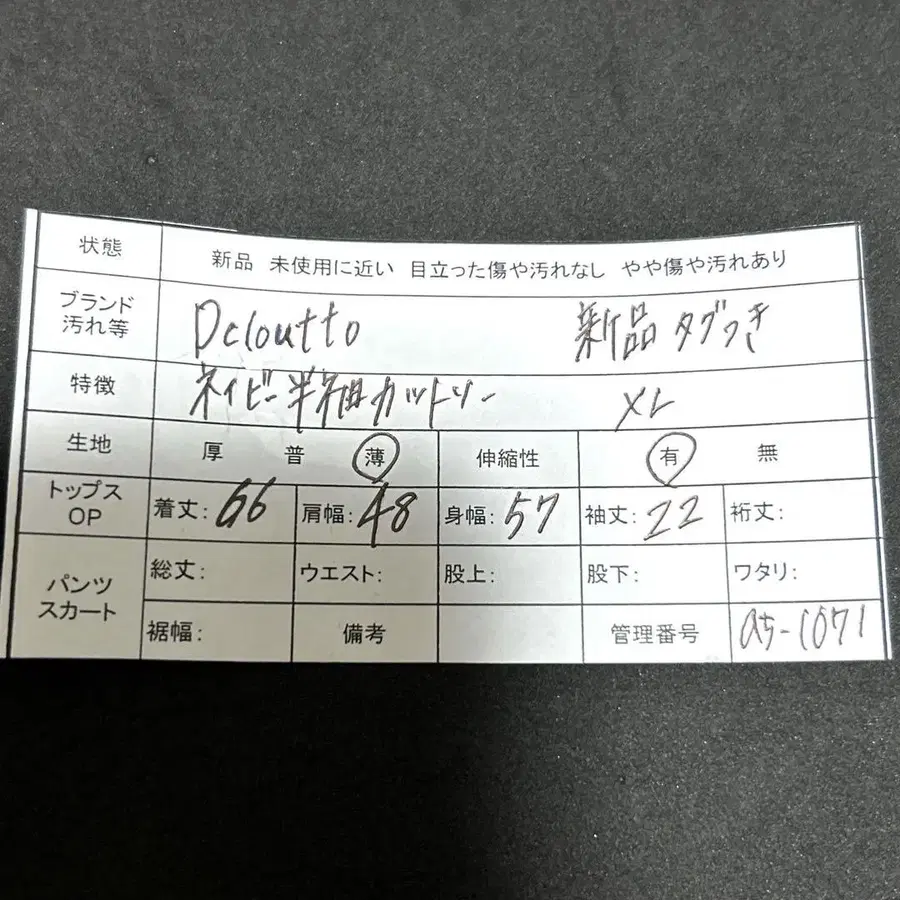 状態 新品 未使用に近い 目立った傷や汚れなし やや傷や汚れあり
ブランド
汚れ等 Dcloutto 新品タグつき
特徴 ネイビー半袖カットソー XL
生地 厚 普 薄 伸縮性 有 無
トップス
OP 着丈: 66 肩幅: 48 身幅: 57 袖丈: 22 裄丈:
パンツ
スカート 総丈: ウエスト: 股上: 股下: ワタリ:
裾幅: 備考 管理番号 a5-1071